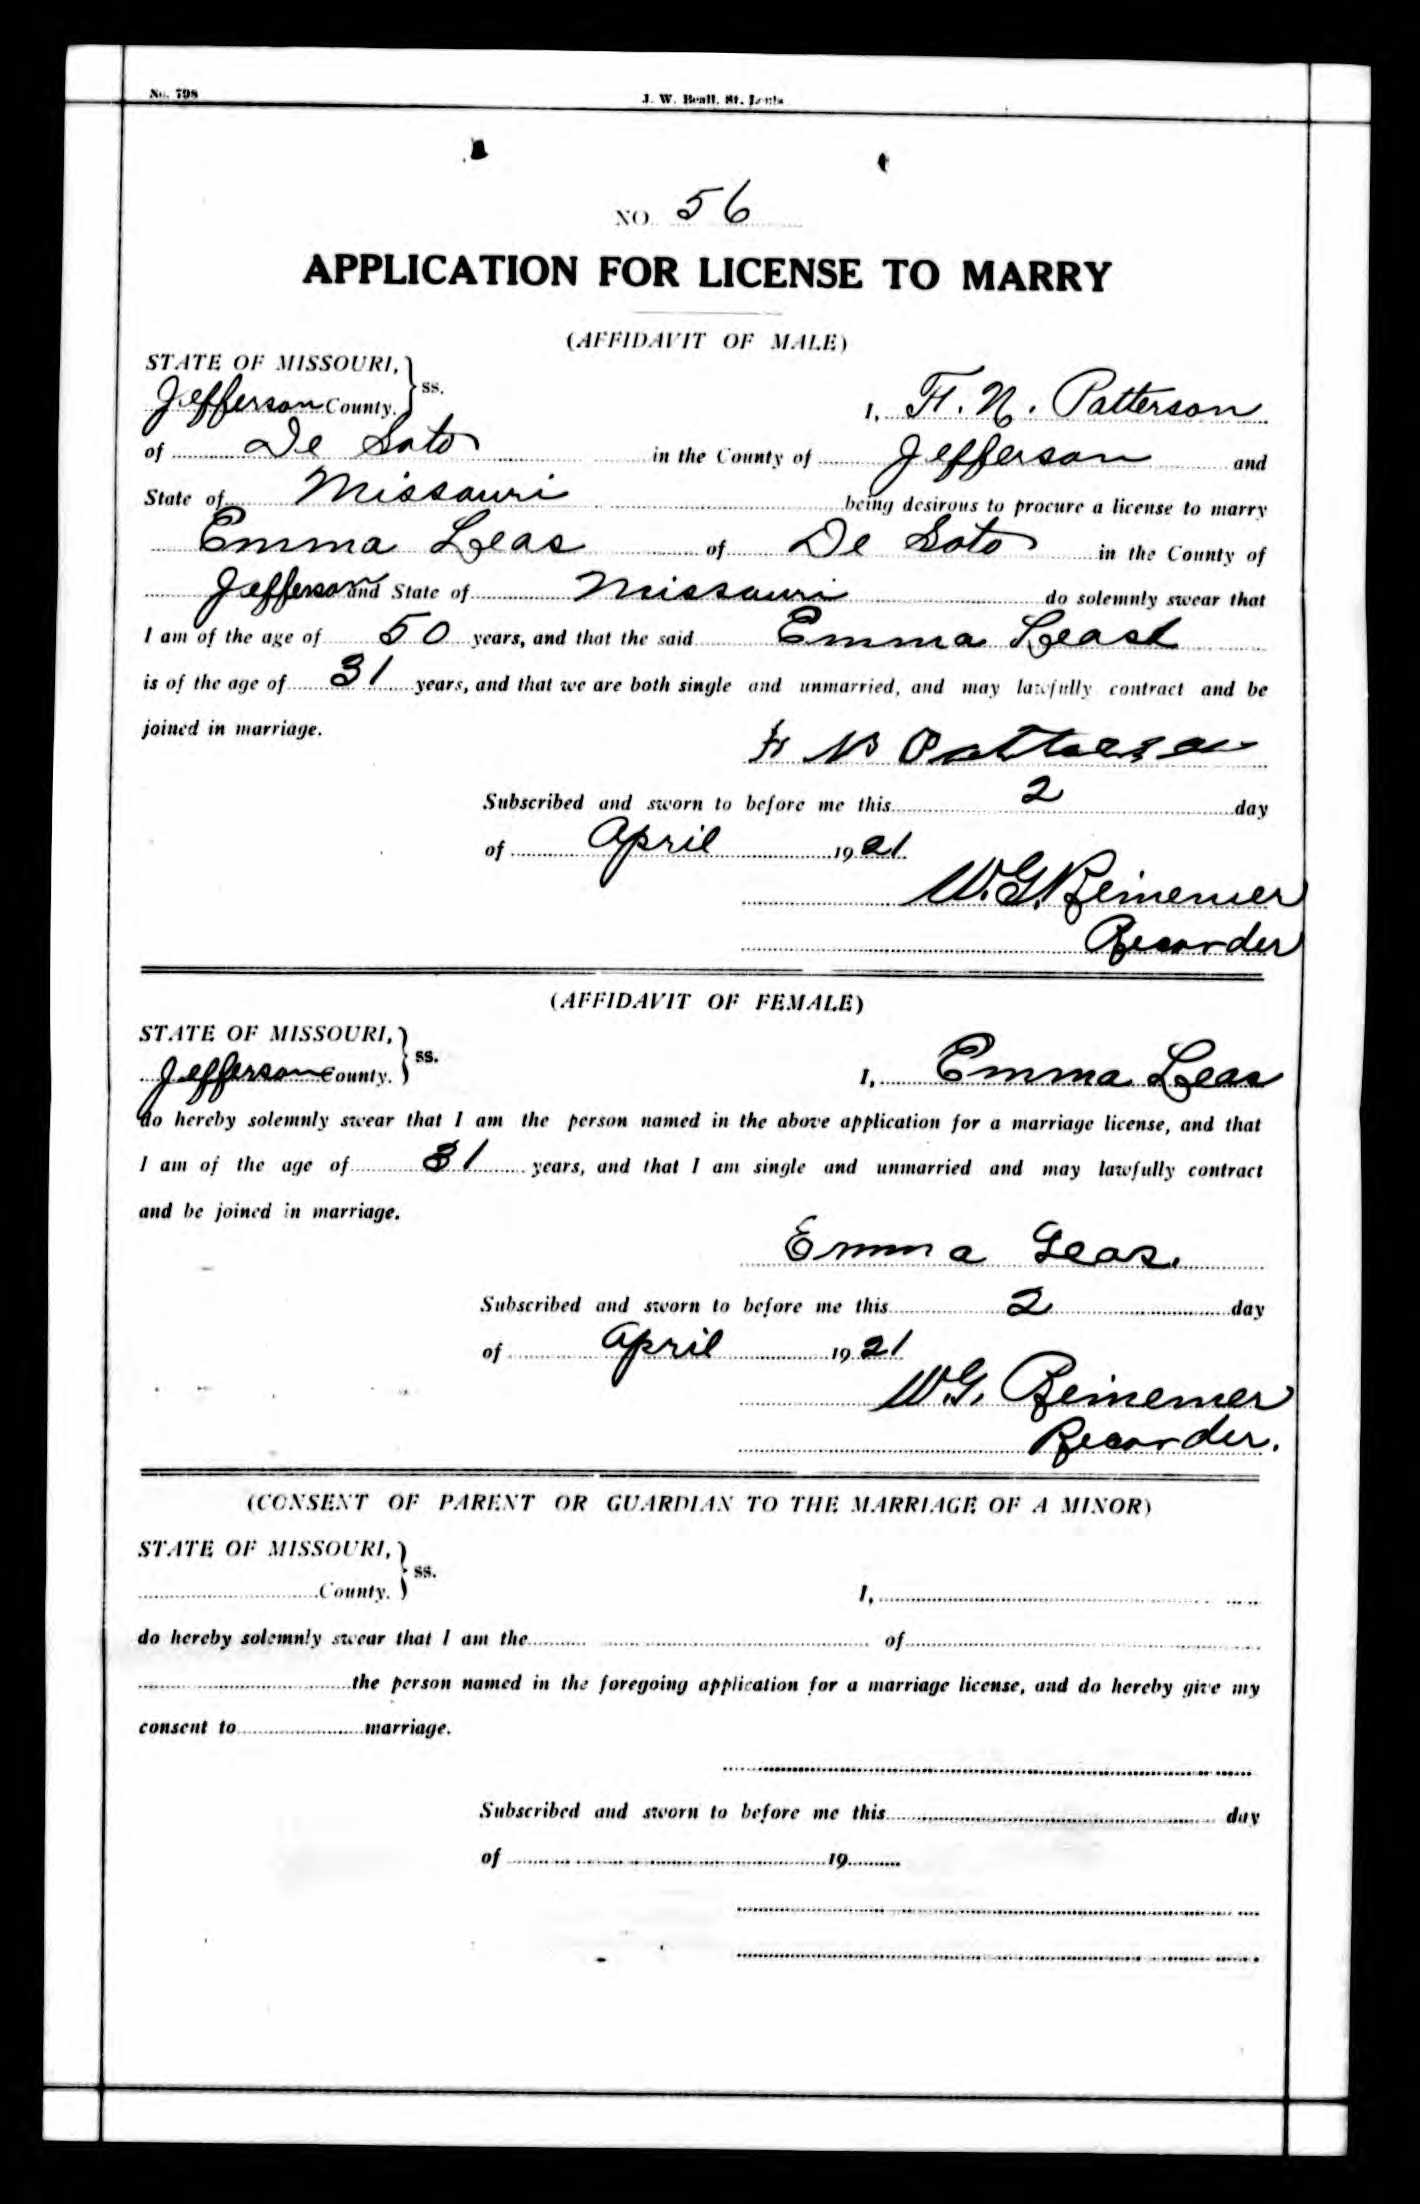 No. 798
J. W. Beall, St. Louis
NO. 56
APPLICATION FOR LICENSE TO MARRY
(AFFIDAVIT OF MALE)
STATE OF MISSOURI,
Jefferson County. } ss. I, F. N. Patterson
of De Soto in the County of Jefferson and
State of Missouri being desirous to procure a license to marry
Emma Leas of De Soto in the County of
Jefferson and State of Missouri do solemnly swear that
I am of the age of 50 years, and that the said Emma Leas
is of the age of 31 years, and that we are both single and unmarried, and may lawfully contract and be
joined in marriage.
F N Patterson
Subscribed and sworn to before me this 2 day
of April 1921
W.G. Reinemer
Recorder
(AFFIDAVIT OF FEMALE)
STATE OF MISSOURI,
Jefferson County. } ss. I, Emma Leas
do hereby solemnly swear that I am the person named in the above application for a marriage license, and that
I am of the age of 31 years, and that I am single and unmarried and may lawfully contract
and be joined in marriage.
Emma Leas.
Subscribed and sworn to before me this 2 day
of April 1921
W.G. Reinemer
Recorder.
(CONSENT OF PARENT OR GUARDIAN TO THE MARRIAGE OF A MINOR)
STATE OF MISSOURI,
County. } ss. I,
do hereby solemnly swear that I am the of
the person named in the foregoing application for a marriage license, and do hereby give my
consent to marriage.
Subscribed and sworn to before me this day
of 19